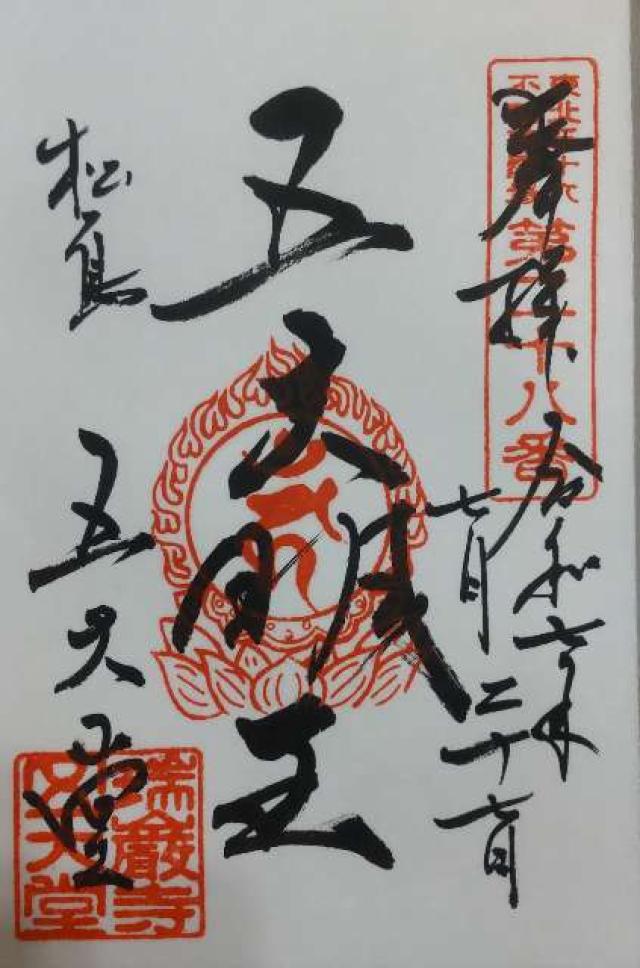 東北三十六
不動尊霊場
第二十八番
奉拝
令和六年
七月二十七日
五大明王
松島
五大堂
瑞巖寺
五大堂